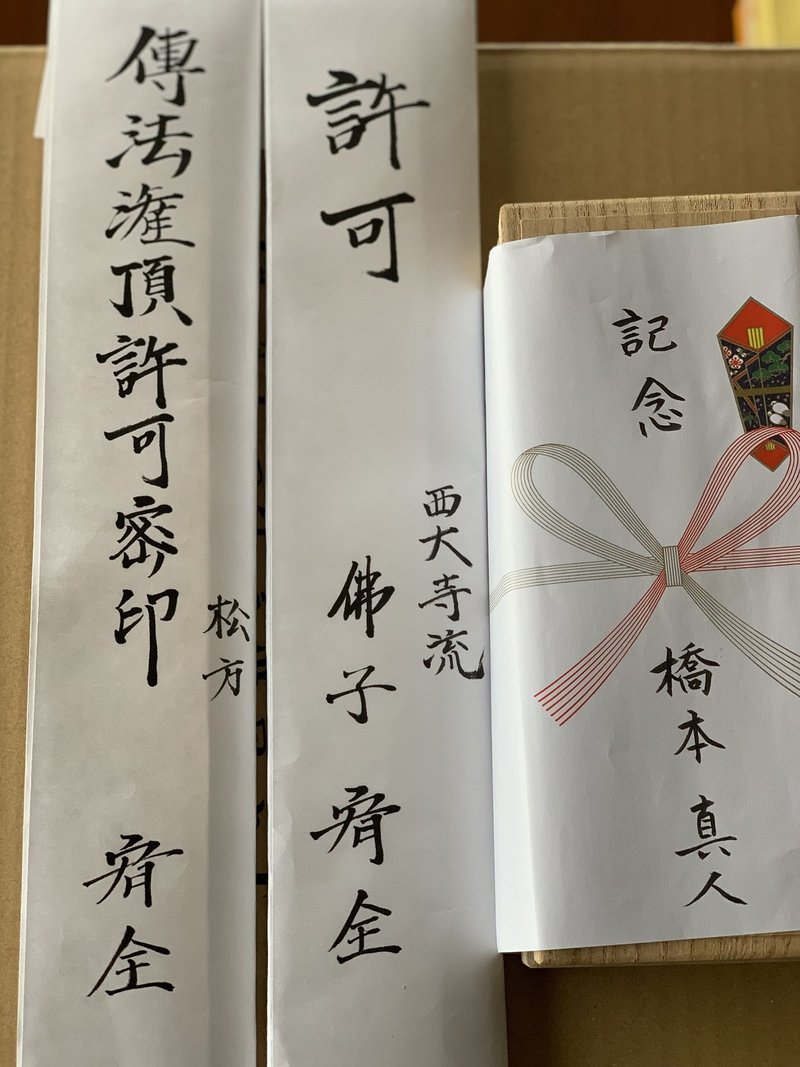 記念
橋本 真人
許可
西大寺流
佛子 宥全
傳法潅頂許可密印
松方
宥全